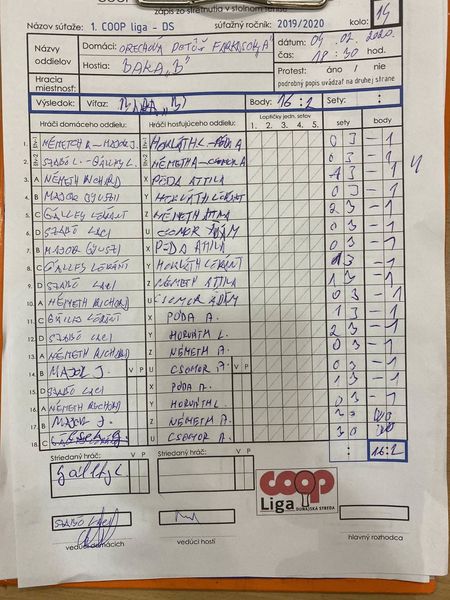 zápis zo stretnutia v stolnom tenise
Názov súťaže: 1. COOP liga - DS súťažný ročník: 2019/2020 kolo: 14
Názvy oddielov
Domáci: ORECHOVÁ POTÔŇ
Hostia: BAKA "B"
dátum: 2020
čas: 18:30 hod.
Hracia miestnosť:
Protest: áno / nie
podrobný popis uvádzať na druhej strane
Výsledok: Víťaz: BAKA "B" Body: 16:2 Sety: :
Hráči domáceho oddielu: Hráči hosťujúceho oddielu: Loptičky jedn. setov sety body
1. 2. 3. 4. 5.
1. NÉMETH R - MAJOR J. HORVÁTH L - PÓDA A 0 3 - 1
2. SZABÓ L - NÉMETH A - CSOMOR A 0 3 - 1
3. A NÉMETH RICHARD X PÓDA ATTILA 3 - 1
4. B MAJOR Y HORVÁTH LÓRÁNT 0 3 - 1
5. C GÁLLES LÓRÁNT Z NÉMETH ATTILA 2 3 - 1
6. D SZABÓ LACI U CSOMOR ÁDÁM 0 3 - 1
7. B MAJOR X PÓDA ATTILA 0 3 - 1
8. C GÁLLES LÓRÁNT Y HORVÁTH LÓRÁNT 3 - 1
9. D SZABÓ LACI Z NÉMETH ATTILA 1 3 - 1
10. A NÉMETH RICHARD U CSOMOR ÁDÁM 0 3 - 1
11. C LÓRÁNT X PÓDA A. 1 3 - 1
12. D SZABÓ LACI Y HORVÁTH L. 2 3 - 1
13. A NÉMETH RICHARD Z NÉMETH A. 0 3 - 1
14. B MAJOR J. V P U CSOMOR A. V P 0 3 - 1
15. D SZABÓ LACI X PÓDA A. 1 3 - 1
16. A NÉMETH RICHARD Y HORVÁTH L 0 3 - 1
17. B MAJOR J. Z NÉMETH A. 3
18. C U CSOMOR A. 3 0
Striedaný hráč: V P Striedaný hráč: V P : 16:2
SZABÓ
COOP
Liga DUNAJSKÁ STREDA
vedúci domácich vedúci hostí hlavný rozhodca